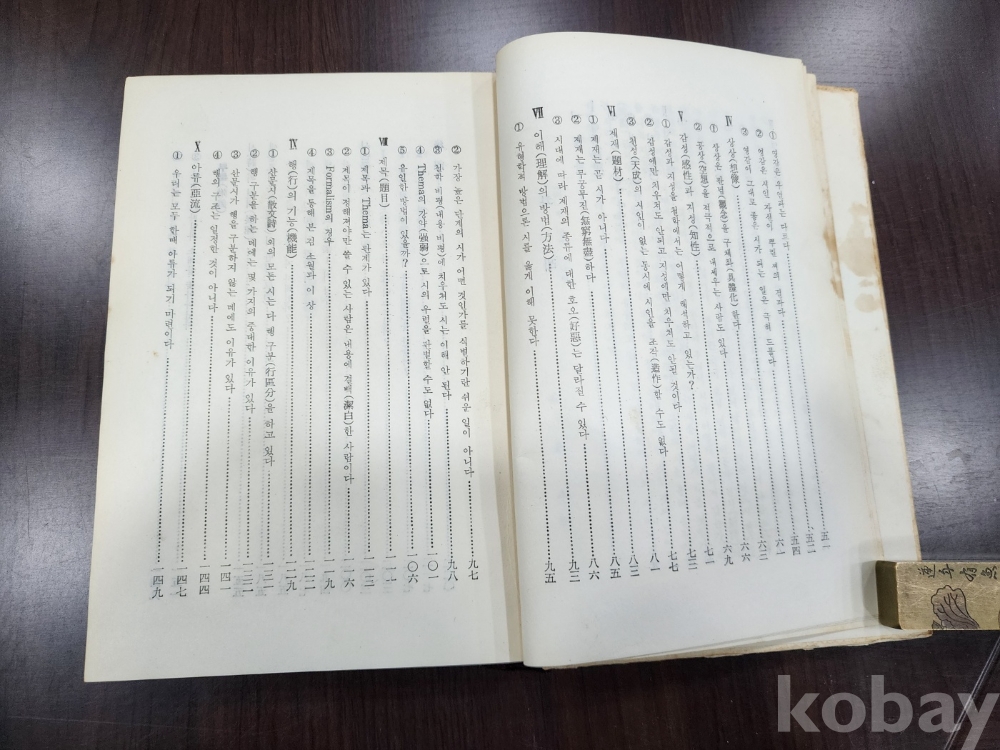 ① 영감은 우연과는 다르다……五一
② 영감은 시인 자신이 뿌릴 씨의 결과다……五二
③ 영감이 그대로 좋은 시가 되는 일은 극히 드물다……五四
Ⅳ 상상(想像)……六一
① 상상은 관념(觀念)을 구체화(具體化)한다……六二
② 공상(空想)을 적극적으로 내세우는 사람도 있다……六六
Ⅴ 감성(感性)과 지성(知性)……六九
① 감성과 지성을 철학에서는 어떻게 해석하고 있는가?……七一
② 감성에만 치우쳐도 안되고 지성에만 치우쳐도 안될 것이다……七三
③ 천성(天成)의 시인이 없는 동시에 시인을 조작(造作)할 수도 없다……七七
Ⅵ 제재(題材)……八一
① 제재는 곧 시가 아니다……八二
② 제재는 무궁무진(無窮無盡)하다……八五
③ 시대에 따라 제재의 종류에 대한 호오(好惡)는 달라질 수 있다……八六
Ⅶ 이해(理解)의 방법(方法)……九二
① 유형학적 방법으론 시를 옳게 이해 못한다……九五
② 가장 높은 단계의 시가 어떤 것인가를 식별하기란 쉬운 일이 아니다……九七
③ 철학 비평(내용 비평)에 치우쳐도 시는 이해 안 된다……九八
④ Thema의 강약(強弱)으로 시의 우런을 판별할 수도 없다……一〇一
⑤ 유일한 방법이 있을까?……一〇六
Ⅷ 제목(題目)……一一一
① 제목과 Thema는 관계가 있다……一一二
② 제목이 정해져야만 쓸 수 있는 사람은 내용에 결백(潔白)한 사람이다……一一六
③ Formalism의 경우……一一九
④ 제목을 통해 본 진 초월과 이상……一二二
Ⅸ 행(行)의 기능(機能)……一二九
① 산문시(散文詩) 외의 모든 시는 다 행 구분(行區分)을 하고 있다……一三一
② 행 구분을 하는 데에는 몇 가지의 중대한 이유가 있다……一三二
③ 산문시가 행을 구분하지 않는 데에도 이유가 있다……一四一
④ 행의 구조는 일정한 것이 아니다……一四四
Ⅹ 아류(亞流)……一四七
① 우리는 모두 한때 아류가 되기 마련이다……一四九
連年有魚
kobay